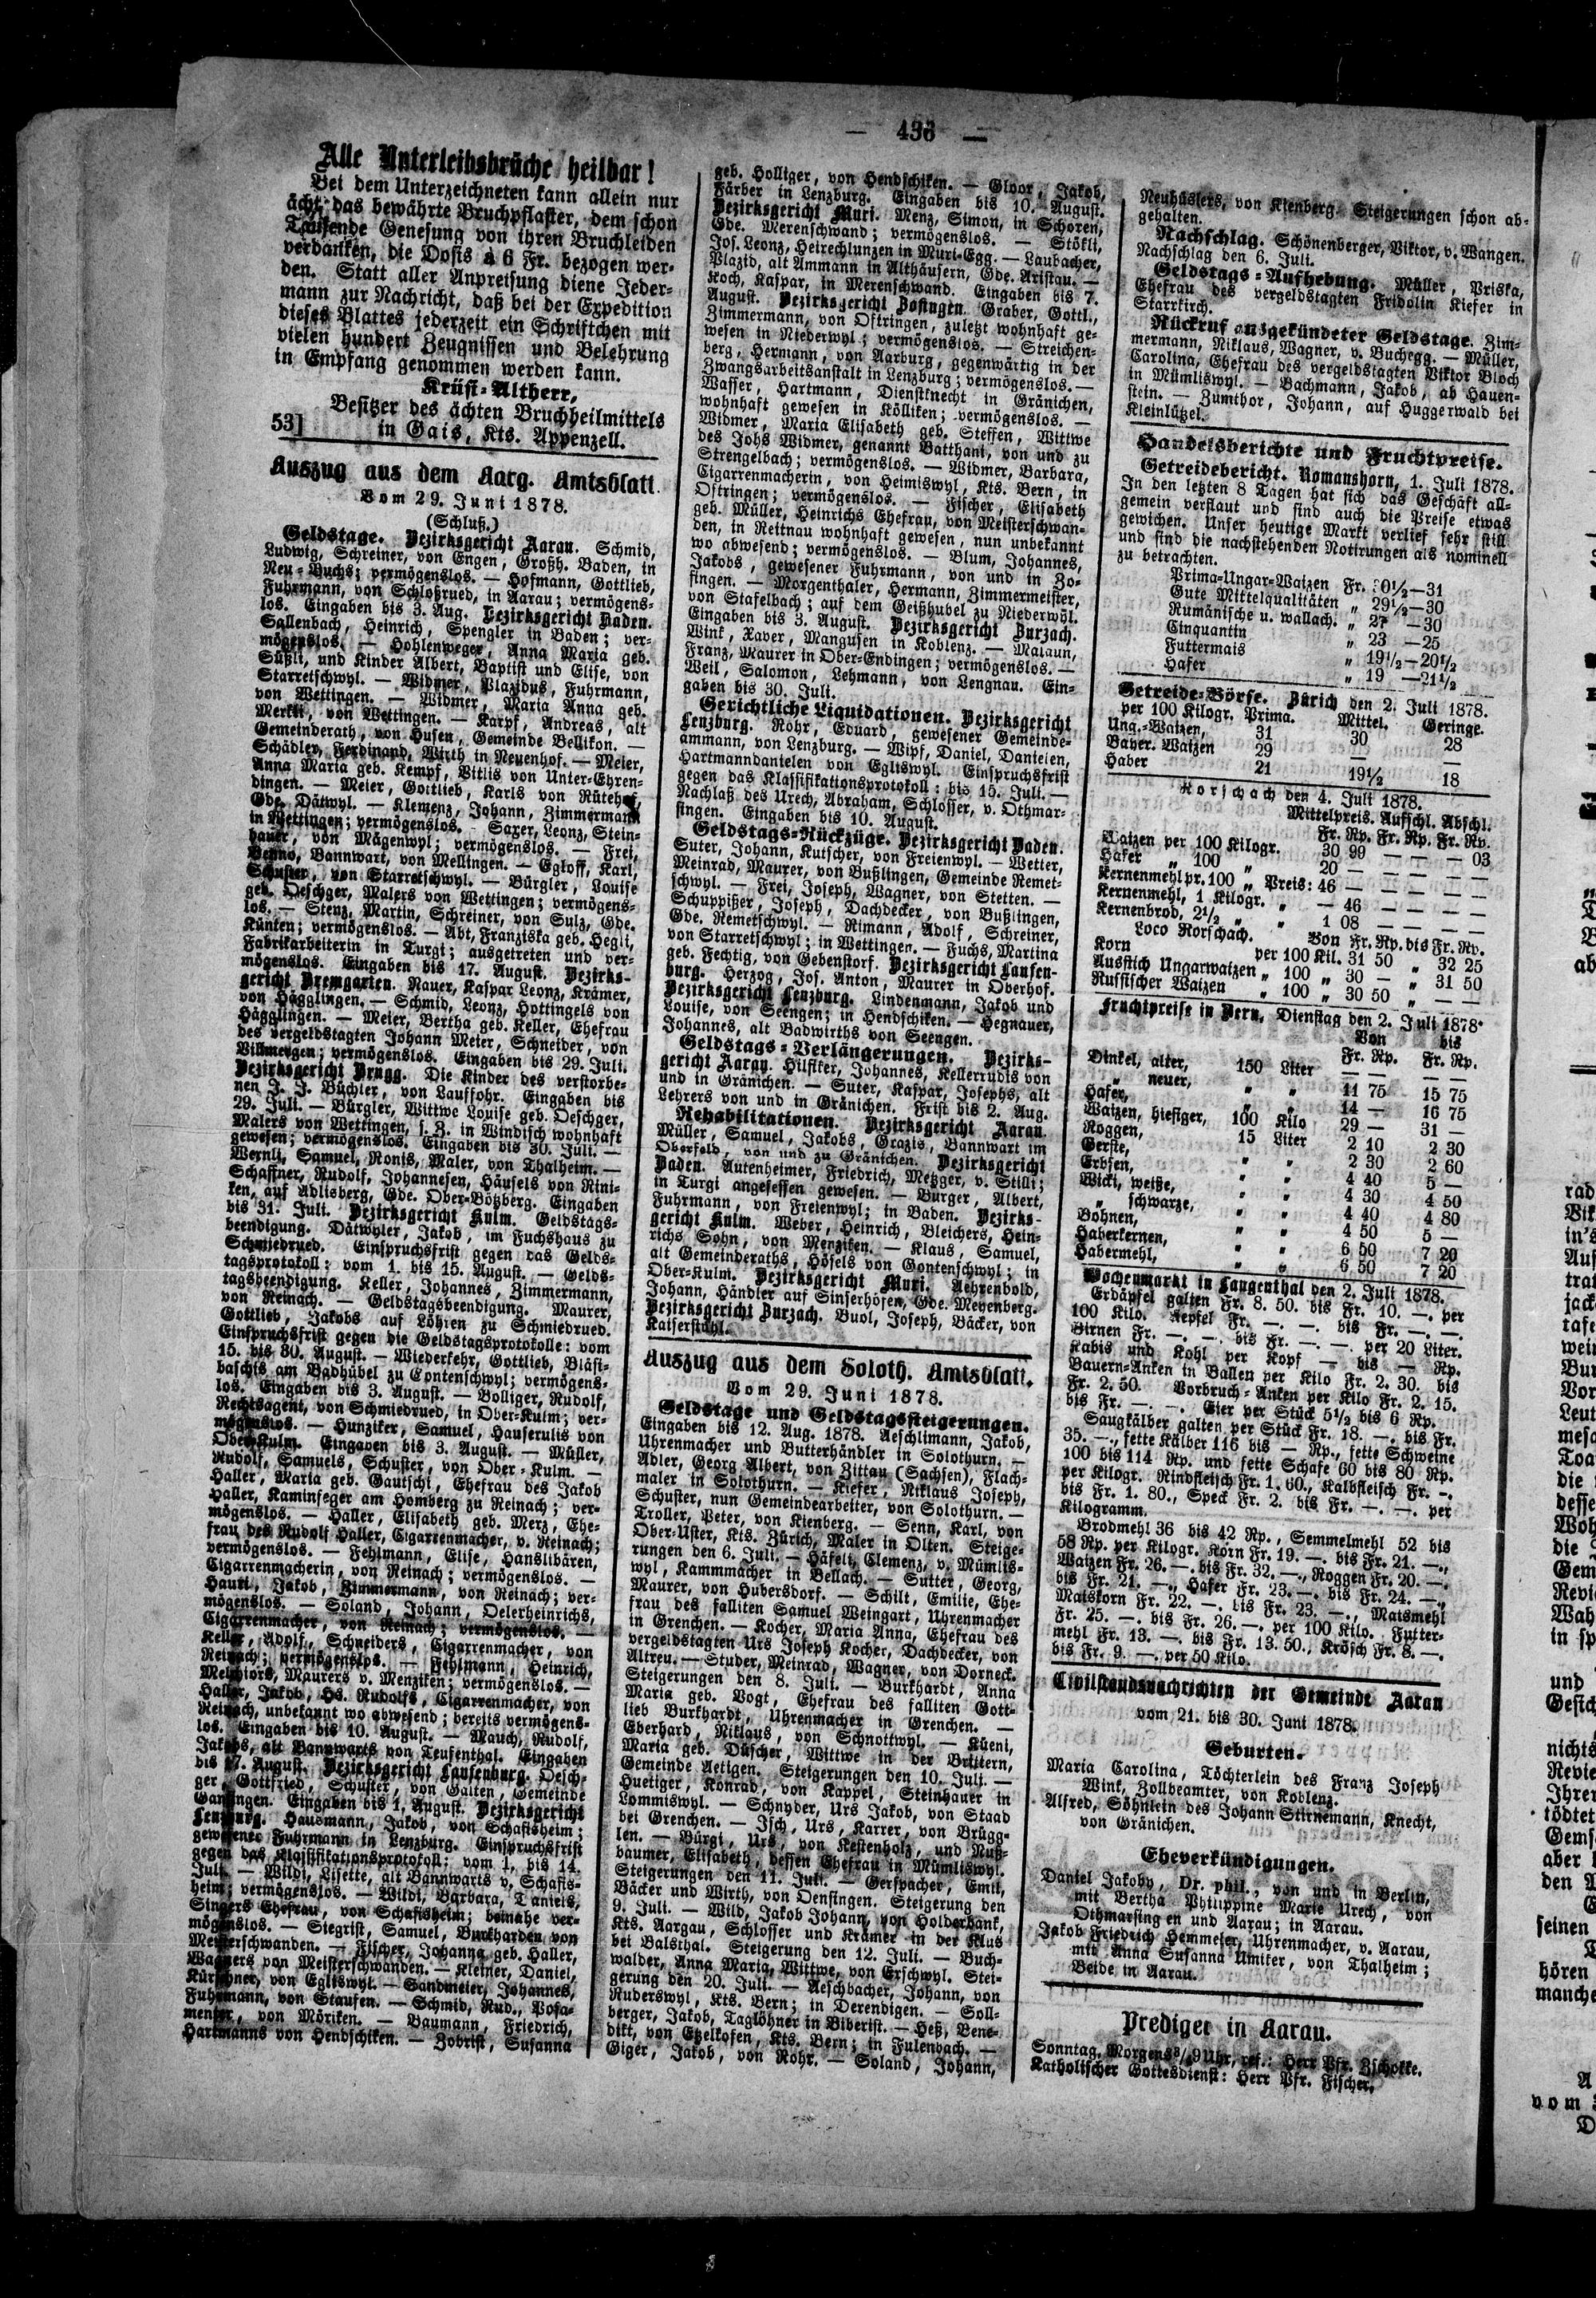 — 436 —
Alle Unterleibsbrüche heilbar!
Bei dem Unterzeichneten kann allein nur
ächt, das bewährte Bruchpflaster, dem schon
Tausende Genesung von ihren Bruchleiden
verdanken, die Dosis à 6 Fr. bezogen wer-
den. Statt aller Anpreisung diene Jeder-
mann zur Nachricht, daß bei der Expedition
dieses Blattes jederzeit ein Schriftchen mit
vielen hundert Zeugnissen und Belehrung
in Empfang genommen werden kann.
Krüsi-Altherr,
Besitzer des ächten Bruchheilmittels
53] in Gais, Kts. Appenzell.
Auszug aus dem Aarg. Amtsblatt
Vom 29. Juni 1878.
(Schluß.)
Geldstage. Bezirksgericht Aarau. Schmid,
Ludwig, Schreiner, von Engen, Großh. Baden, in
Neu-Buchs; vermögenslos. — Hofmann, Gottlieb,
Fuhrmann, von Schloßrued, in Aarau; vermögens-
los. Eingaben bis 3. Aug. Bezirksgericht Baden.
Sallenbach, Heinrich, Spengler in Baden; ver-
mögenslos. — Hohlenweger, Anna Maria geb.
Süßli, und Kinder Albert, Baptist und Elise, von
Starretschwyl. — Widmer, Plazidus, Fuhrmann,
von Wettingen. — Widmer, Maria Anna geb.
Merkli, von Wettingen. — Karpf, Andreas, alt
Gemeinderath, von Husen, Gemeinde Bellikon. —
Schädler, Ferdinand, Wirth in Neuenhof. — Meier,
Anna Maria geb. Kempf, Vitlis von Unter-Ehren-
dingen. — Meier, Gottlieb, Karls von Rütehof,
Gde. Dätwyl. — Klemenz, Johann, Zimmermann
in Wettingen; vermögenslos. - Saxer, Leonz, Stein-
hauer, von Mägenwyl; vermögenslos. — Frei,
Benno, Bannwart, von Mellingen. — Egloff, Karl,
Schuster, von Starretschwyl. — Bürgler, Louise
geb. Oeschger, Malers von Wettingen; vermögens-
los. — Stenz, Martin, Schreiner, von Sulz, Gde.
Künten; vermögenslos. — Abt, Franziska geb. Hegli,
Fabrikarbeiterin in Turgi; ausgetreten und ver-
mögenslos. Eingaben bis 17. August. Bezirks-
gericht Bremgarten. Nauer, Kaspar Leonz, Krämer,
von Hägglingen. — Schmid, Leonz, Hottingels von
Hägglingen. — Meier, Bertha geb. Keller, Ehefrau
des vergeldstagten Johann Meier, Schneider, von
Villmergen; vermögenslos. Eingaben bis 29. Juli.
Bezirksgericht Brugg. Die Kinder des verstorbe-
nen J. J. Büchler, von Lauffohr. Eingaben bis
29. Juli. — Bürgler, Wittwe Louise geb. Oeschger,
Malers von Wettingen, s. Z. in Windisch wohnhaft
gewesen; vermögenslos. Eingaben bis 30. Juli. —
Wernli, Samuel, Ronis, Maler, von Thalheim. —
Schaffner, Rudolf, Johannesen, Häusels von Rini-
ken, auf Adlisberg, Gde. Ober-Bötzberg. Eingaben
bis 31. Juli. Bezirksgericht Kulm. Geldstags-
beendigung. Dätwyler, Jakob, im Fuchshaus zu
Schmiedrued. Einspruchsfrist gegen das Gelds-
tagsprotokoll: vom 1. bis 15. August. — Gelds-
tagsbeendigung. Keller, Johannes, Zimmermann,
von Reinach. — Geldstagsbeendigung. Maurer,
Gottlieb, Jakobs auf Löhren zu Schmiedrued.
Einspruchsfrist gegen die Geldstagsprotokolle: vom
15. bis 30. August. — Wiederkehr, Gottlieb, Bläsi-
baschis am Badhübel zu Gontenschwyl; vermögens-
los. Eingaben bis 3. August. — Bolliger, Rudolf,
Rechtsagent, von Schmiedrued, in Ober-Kulm; ver-
mögenslos. — Hunziker, Samuel, Hauserulis von
Ober-Kulm. Eingaben bis 3. August. — Müller,
Rudolf, Samuels, Schuster, von Ober-Kulm. —
Haller, Maria geb. Gautschi, Ehefrau des Jakob
Haller, Kaminfeger am Homberg zu Reinach; ver-
mögenslos. — Haller, Elisabeth geb. Merz, Ehe-
frau des Rudolf Haller, Cigarrenmacher, v. Reinach;
vermögenslos. — Fehlmann, Elise, Hanslibären,
Cigarrenmacherin, von Reinach; vermögenslos. —
Hauri, Jakob, Zimmermann, von Reinach; ver-
mögenslos. — Soland, Johann, Oelerheinrichs,
Cigarrenmacher, von Reinach; vermögenslos. —
Keller, Adolf, Schneiders, Cigarrenmacher, von
Reinach; vermögenslos. — Fehlmann, Heinrich,
Melchiors, Maurers v. Menziken; vermögenslos. —
Haller, Jakob, Hs. Rudolfs, Cigarrenmacher, von
Reinach, unbekannt wo abwesend; bereits vermögens-
los. Eingaben bis 10. August. — Mauch, Rudolf,
Jakobs, alt Bannwarts von Teufenthal. Eingaben
bis August. Bezirksgericht Laufenburg. Oesch-
ger, Gottfried, Schuster, von Galten, Gemeinde
Gansingen. Eingaben bis 1. August. Bezirksgericht
Lenzburg. Hausmann, Jakob, von Schafisheim;
gewesener Fuhrmann in Lenzburg. Einspruchsfrist
gegen das Klassifikationsprotokoll: vom 1. bis 14.
Juli. — Wildi, Lisette, alt Bannwarts v. Schafis-
heim; vermögenslos. — Wildi, Barbara, Daniels,
Singers Ehefrau, von Schafisheim; beinahe ver-
mögenslos. — Siegrist, Samuel, Burkharden von
Meisterschwanden. — Fischer, Johanna geb. Haller,
Wagners von Meisterschwanden. — Kleiner, Daniel,
Kürschner, von Egliswyl. — Sandmeier, Johannes,
Fuhrmann, von Staufen. — Schmid, Rud., Posa-
menter, von Möriken. — Baumann, Friedrich,
Hartmanns von Hendschiken. — Zobrist, Susanna
geb. Holliger, von Hendschiken. — Gloor, Jakob,
Färber in Lenzburg. Eingaben bis 10. August.
Bezirksgericht Muri. Menz, Simon, in Schoren,
Gde. Merenschwand; vermögenslos. — Stökli,
Jos. Leonz, Heirechlunzen in Muri-Egg. — Laubacher,
Plazid, alt Ammann in Althäusern, Gde. Aristau. —
Koch, Kaspar, in Merenschwand. Eingaben bis 7.
August. Bezirksgericht Zofingen. Graber, Gottl.,
Zimmermann, von Oftringen, zuletzt wohnhaft ge-
wesen in Niederwyl; vermögenslos. — Streichen-
berg, Hermann, von Aarburg, gegenwärtig in der
Zwangsarbeitsanstalt in Lenzburg; vermögenslos. —
Wasser, Hartmann, Dienstknecht in Gränichen,
wohnhaft gewesen in Kölliken; vermögenslos. —
Widmer, Maria Elisabeth geb. Steffen, Wittwe
des Johs Widmer, genannt Batthani, von und zu
Strengelbach; vermögenslos. — Widmer, Barbara,
Cigarrenmacherin, von Heimiswyl, Kts. Bern, in
Oftringen; vermögenslos. — Fischer, Elisabeth
geb. Müller, Heinrichs Ehefrau, von Meisterschwan-
den, in Reitnau wohnhaft gewesen, nun unbekannt
wo abwesend; vermögenslos. — Blum, Johannes,
Jakobs, gewesener Fuhrmann, von und in Zo-
fingen. — Morgenthaler, Hermann, Zimmermeister,
von Stafelbach; auf dem Geißhubel zu Niederwyl.
Eingaben bis 3. August. Bezirksgericht Zurzach.
Wink, Xaver, Mangusen in Koblenz. — Malaun,
Franz, Maurer in Ober-Endingen; vermögenslos. —
Weil, Salomon, Lehmann, von Lengnau. Ein-
gaben bis 30. Juli.
Gerichtliche Liquidationen. Bezirksgericht
Lenzburg. Rohr, Eduard, gewesener Gemeinde-
ammann, von Lenzburg. — Wipf, Daniel, Danielen,
Hartmanndanielen von Egliswyl. Einspruchsfrist
gegen das Klassifikationsprotokoll: bis 15. Juli. —
Nachlaß des Urech, Abraham, Schlosser, v. Othmar-
singen. Eingaben bis 10. August.
Geldstags-Rückzüge. Bezirksgericht Baden.
Suter, Johann, Kutscher, von Freienwyl. — Wetter,
Meinrad, Maurer, von Bußlingen, Gemeinde Remet-
schwyl. — Frei, Joseph, Wagner, von Stetten. —
Schuppißer, Joseph, Dachdecker, von Bußlingen,
Gde. Remetschwyl. — Rimann, Adolf, Schreiner,
von Starretschwyl; in Wettingen. — Fuchs, Martina
geb. Fechtig, von Gebenstorf. Bezirksgericht Laufen-
burg. Herzog, Jos. Anton, Maurer in Oberhof.
Bezirksgericht Lenzburg. Lindenmann, Jakob und
Louise, von Seengen; in Hendschiken. — Hegnauer,
Johannes, alt Badwirths von Seengen.
Geldstags-Verlängerungen. Bezirks-
gericht Aarau. Hilfiker, Johannes, Kellerrudis von
und in Gränichen. — Suter, Kaspar, Josephs, alt
Lehrers von und in Gränichen. Frist bis 2. Aug.
Rehabilitationen. Bezirksgericht Aarau.
Müller, Samuel, Jakobs, Grazis, Bannwart im
Oberfeld, von und zu Gränichen. Bezirksgericht
Baden. Autenheimer, Friedrich, Metzger, v. Stilli;
in Turgi angesessen gewesen. — Burger, Albert,
Fuhrmann, von Freienwyl; in Baden. Bezirks-
gericht Kulm. Weber, Heinrich, Bleichers, Hein-
richs Sohn, von Menziken. — Klaus, Samuel,
alt Gemeinderaths, Hösels von Gontenschwyl; in
Ober-Kulm. Bezirksgericht Muri. Aehrenbold,
Johann, Händler auf Sinserhöfen, Gde. Meyenberg.
Bezirksgericht Zurzach. Buol, Joseph, Bäcker, von
Kaiserstuhl.
Auszug aus dem Soloth. Amtsblatt.
Vom 29. Juni 1878.
Geldstage und Geldstagssteigerungen.
Eingaben bis 12. Aug. 1878. Aeschlimann, Jakob,
Uhrenmacher und Butterhändler in Solothurn. —
Adler, Georg Albert, von Zittau (Sachsen), Flach-
maler in Solothurn. — Kiefer, Niklaus Joseph,
Schuster, nun Gemeindearbeiter, von Solothurn. —
Troller, Peter, von Kienberg. — Senn, Karl, von
Ober-Uster, Kts. Zürich, Maler in Olten. Steige-
rungen den 6. Juli. — Häfeli, Clemenz, v. Mümlis-
wyl, Kammmacher in Bellach. — Sutter, Georg,
Maurer, von Hubersdorf. — Schilt, Emilie, Ehe-
frau des falliten Samuel Weingart, Uhrenmacher
in Grenchen. — Kocher, Maria Anna, Ehefrau des
vergeldstagten Urs Joseph Kocher, Dachdecker, von
Altreu. — Studer, Meinrad, Wagner, von Dorneck.
Steigerungen den 8. Juli. — Burkhardt, Anna
Maria geb. Vogt, Ehefrau des falliten Gott-
lieb Burkhardt, Uhrenmacher in Grenchen. —
Eberhard, Niklaus, von Schnottwyl. — Küeni,
Maria geb. Düscher, Wittwe in der Brittern,
Gemeinde Aetigen. Steigerungen den 10. Juli. —
Huetiger, Konrad, von Kappel, Steinhauer in
Lommiswyl. — Schnyder, Urs Jakob, von Staad
bei Grenchen. — Isch, Urs, Karrer, von Brügg-
len. — Bürgi, Urs, von Kestenholz, und Nuß-
baumer, Elisabeth, dessen Ehefrau in Mümliswyl.
Steigerungen den 11. Juli. — Gerspacher, Emil,
Bäcker und Wirth, von Oensingen. Steigerung den
9. Juli. — Wild, Jakob Johann, von Holderbank,
Kts. Aargau, Schlosser und Krämer in der Klus
bei Balsthal. Steigerung den 12. Juli. — Buch-
walder, Anna Maria, Wittwe, von Erschwyl. Stei-
gerung den 20. Juli. — Aeschbacher, Johann, von
Ruderswyl, Kts. Bern; in Derendigen. — Soll-
berger, Jakob, Taglöhner in Biberist. — Heß, Bene-
dikt, von Etzelkofen, Kts. Bern; in Fulenbach. —
Giger, Jakob, von Rohr. — Soland, Johann,
Neuhüslers, von Kienberg. Steigerungen schon ab-
gehalten.
Nachschlag. Schönenberger, Viktor, v. Wangen.
Nachschlag den 6. Juli.
Geldstags-Aufhebung. Müller, Priska,
Ehefrau des vergeldstagten Fridolin Kiefer in
Starrkirch.
Rückruf ausgekündeter Geldstage. Zim-
mermann, Niklaus, Wagner, v. Buchegg. — Müller,
Carolina, Ehefrau des vergeldstagten Viktor Bloch
in Mümliswyl. — Bachmann, Jakob, ab Hauen-
stein. — Zumthor, Johann, auf Huggerwald bei
Kleinlützel.
Handelsberichte und Fruchtpreise.
Getreidebericht. Romanshorn, 1. Juli 1878.
In den letzten 8 Tagen hat sich das Geschäft all-
gemein verflaut und sind auch die Preise etwas
gewichen. Unser heutige Markt verlief sehr still
und sind die nachstehenden Notirungen als nominell
zu betrachten.
Prima-Ungar-Waizen Fr. 30½—31
Gute Mittelqualitäten „ 29½—30
Rumänische u. wallach. „ 27 —30
Cinquantin „ 23 —25
Futtermais „ 19½—20½
Hafer „ 19 —21½
Getreide-Börse. Zürich den 2. Juli 1878.
per 100 Kilogr. Prima. Mittel. Geringe.
Ung.-Waizen, 31 30 28
Bayer. Waizen 29 — —
Haber 21 19½ 18
Rorschach den 4. Juli 1878.
Mittelpreis. Aufschl. Abschl.
Fr. Rp. Fr. Rp. Fr. Rp.
Waizen per 100 Kilogr. 30 99 — — — 03
Hafer „ 100 „ 20 — — — — —
Kernenmehl pr. 100 „ Preis: 46 — — — — —
Kernenmehl, 1 Kilogr. „ — 46 — — — —
Kernenbrod, 2½ „ „ 1 08 — — — —
Loco Rorschach. Von Fr. Rp. bis Fr. Rp.
Korn per 100 Kil. 31 50 „ 32 25
Ausstich Ungarwaizen „ 100 „ 30 — „ 31 50
Russischer Waizen „ 100 „ 30 50 „ — —
Fruchtpreise in Bern, Dienstag den 2. Juli 1878.
Von bis
Fr. Rp. Fr. Rp.
Dinkel, alter, 150 Liter — — — —
„ neuer, „ „ 11 75 15 75
Hafer, „ „ 14 — 16 75
Waizen, hiesiger, 100 Kilo 29 — 31 —
Roggen, 15 Liter 2 10 2 30
Gerste, „ „ 2 30 2 60
Erbsen, „ „ 4 40 5 —
Wicki, weiße, „ „ 4 30 4 50
„ schwarze, „ „ 4 40 4 80
Bohnen, „ „ 4 50 5 —
Haberkernen, „ „ 6 50 7 20
Habermehl, „ „ 6 50 7 20
Wochenmarkt in Langenthal den 2. Juli 1878.
Erdäpfel galten Fr. 8. 50. bis Fr. 10. —. per
100 Kilo. Aepfel Fr. —. —. bis Fr. —. —.
Birnen Fr. —. —. bis Fr. —. —. per 20 Liter.
Kabis und Kohl per Kopf — bis — Rp.
Bauern-Anken in Ballen per Kilo Fr. 2. 30. bis
Fr. 2. 50. Vorbruch-Anken per Kilo Fr. 2. 15.
bis Fr. —. —. Eier per Stück 5½ bis 6 Rp.
Saugkälber galten per Stück Fr. 18. —. bis Fr.
35. —., fette Kälber 116 bis — Rp., fette Schweine
100 bis 114 Rp. und fette Schafe 60 bis 80 Rp.
per Kilogr. Rindfleisch Fr. 1. 60., Kalbfleisch Fr. -.
bis Fr. 1. 80., Speck Fr. 2. bis Fr. —. —. per
Kilogramm.
Brodmehl 36 bis 42 Rp., Semmelmehl 52 bis
58 Rp. per Kilogr. Korn Fr. 19. —. bis Fr. 21. —.,
Waizen Fr. 26. —. bis Fr. 32. —., Roggen Fr. 20. —.
bis Fr. 21. —., Hafer Fr. 23. —. bis Fr. 24. —.,
Maiskorn Fr. 22. —. bis Fr. 23. —., Maismehl
Fr. 25. —. bis Fr. 26. —. per 100 Kilo. Futter-
mehl Fr. 13. —. bis Fr. 13. 50., Krösch Fr. 8. —.
bis Fr. 9. —. per 50 Kilo.
Civilstandsnachrichten der Gemeinde Aarau
vom 21. bis 30. Juni 1878.
Geburten.
Maria Carolina, Töchterlein des Franz Joseph
Wink, Zollbeamter, von Koblenz.
Alfred, Söhnlein des Johann Stirnemann, Knecht,
von Gränichen.
Eheverkündigungen.
Daniel Jakoby, Dr. phil., von und in Berlin,
mit Bertha Philippine Marie Urech, von
Othmarsingen und Aarau; in Aarau.
Jakob Friedrich Hemmeler, Uhrenmacher, v. Aarau,
mit Anna Susanna Umiker, von Thalheim;
Beide in Aarau.
Prediger in Aarau.
Sonntag, Morgens ¾9 Uhr, ref.: Herr Pfr. Zschokke.
Katholischer Gottesdienst: Herr Pfr. Fischer.